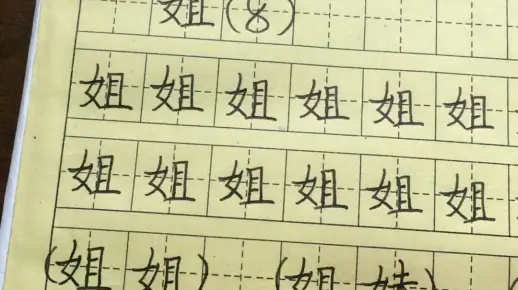 姐(8)
姐姐姐姐姐姐
姐姐姐姐姐姐
(姐姐) (姐妹)